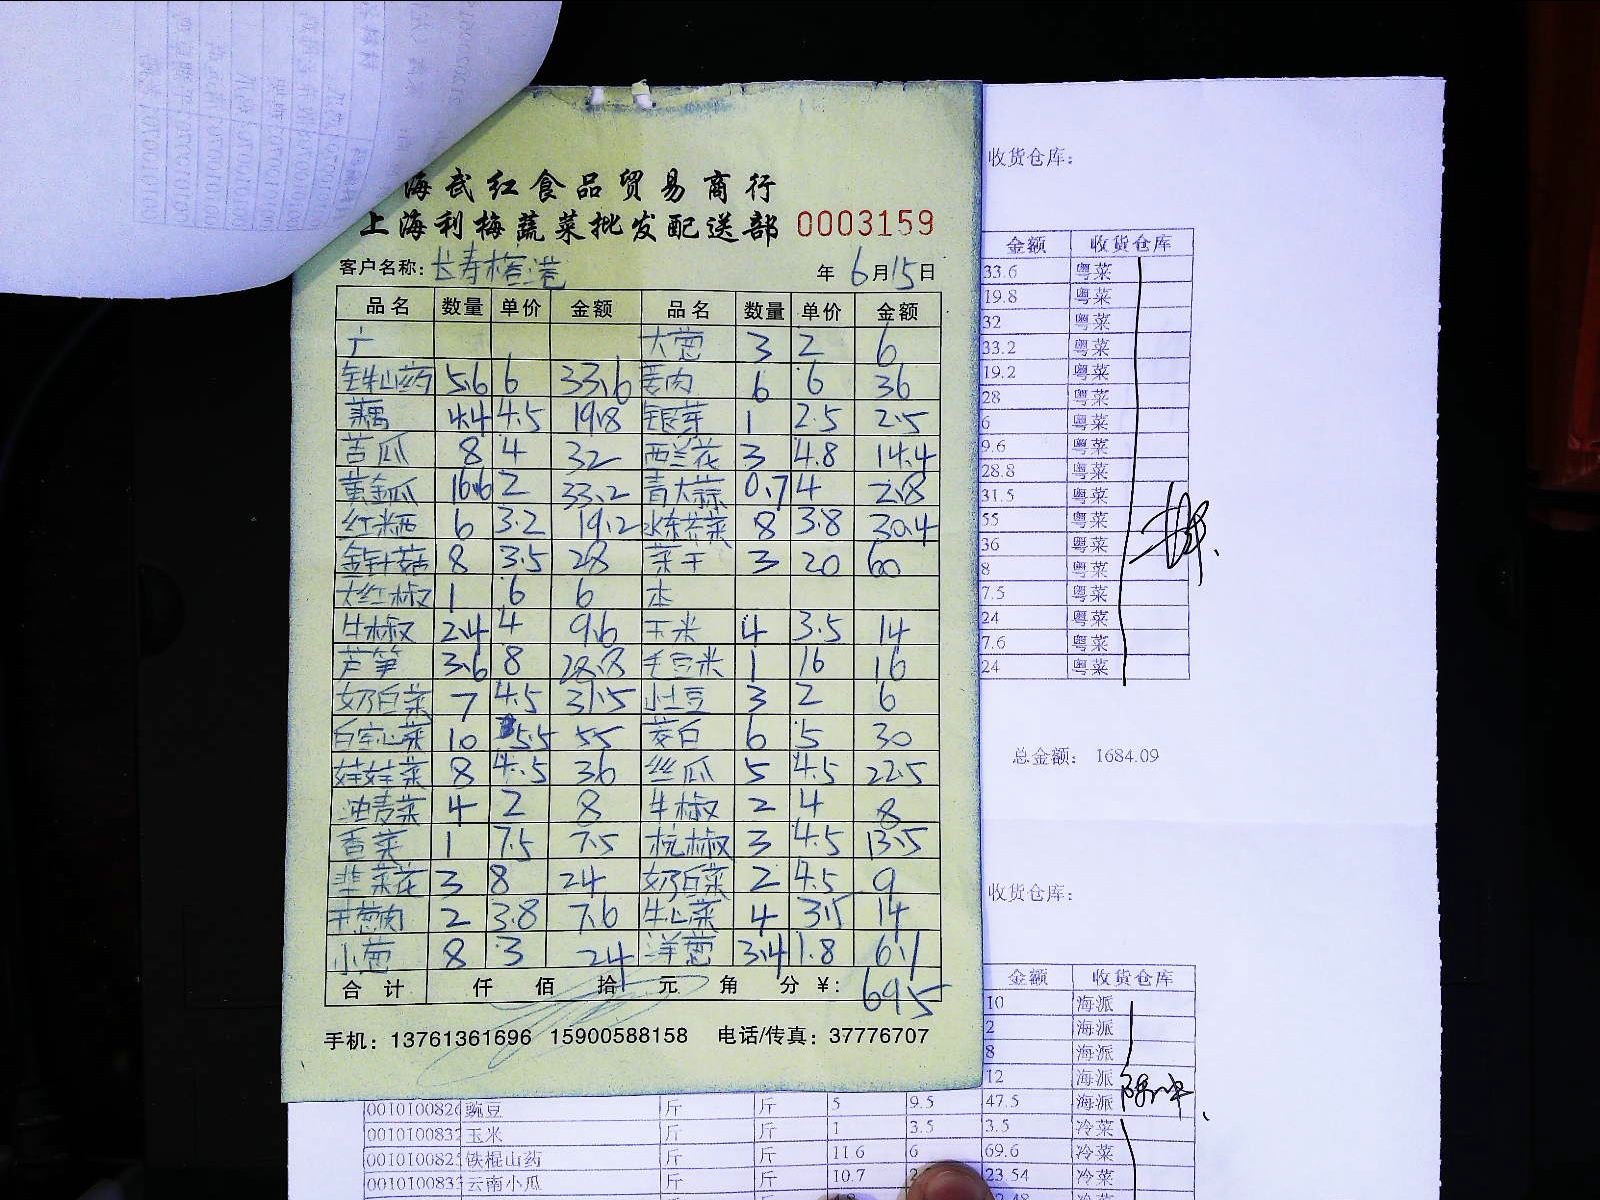 海武红食品贸易商行
上海利梅蔬菜批发配送部 0003159
客户名称: 长寿榕港 年 6月15日
品名 数量 单价 金额 品名 数量 单价 金额
广 大葱 3 2 6
铁棍山药 5.6 6 33.6 姜肉 6 6 36
藕 4.4 4.5 19.8 银芽 1 2.5 2.5
苦瓜 8 4 32 西兰花 3 4.8 14.4
黄金瓜 16.6 2 33.2 青大蒜 0.7 4 2.8
红米西 6 3.2 19.2 水东芥菜 8 3.8 30.4
金针菇 8 3.5 28 菜干 3 20 60
大红椒 1 6 6 本
牛椒 2.4 4 9.6 玉米 4 3.5 14
芦笋 3.6 8 28.8 毛豆米 1 16 16
奶白菜 7 4.5 31.5 小土豆 3 2 6
白空心菜 10 5.5 55 茭白 6 5 30
娃娃菜 8 4.5 36 丝瓜 5 4.5 22.5
油麦菜 4 2 8 牛椒 2 4 8
香菜 1 7.5 7.5 杭椒 3 4.5 13.5
韭菜花 3 8 24 奶白菜 2 4.5 9
干葱肉 2 3.8 7.6 牛心菜 4 3.5 14
小葱 8 3 24 洋葱 3.4 1.8 6.1
合计 仟 佰 拾 元 角 分 ¥: 695
手机: 13761361696 15900588158 电话/传真: 37776707
收货仓库:
金额 收货仓库
33.6 粤菜
19.8 粤菜
32 粤菜
33.2 粤菜
19.2 粤菜
28 粤菜
6 粤菜
9.6 粤菜
28.8 粤菜
31.5 粤菜
55 粤菜
36 粤菜
8 粤菜
7.5 粤菜
24 粤菜
7.6 粤菜
24 粤菜
总金额: 1684.09
收货仓库:
金额 收货仓库
10 海派
2 海派
8 海派
12 海派
0010100826 豌豆 斤 斤 5 9.5 47.5 海派
0010100832 玉米 斤 斤 1 3.5 3.5 冷菜
0010100825 铁棍山药 斤 斤 11.6 6 69.6 冷菜
0010100833 云南小瓜 斤 斤 10.7 23.54 冷菜